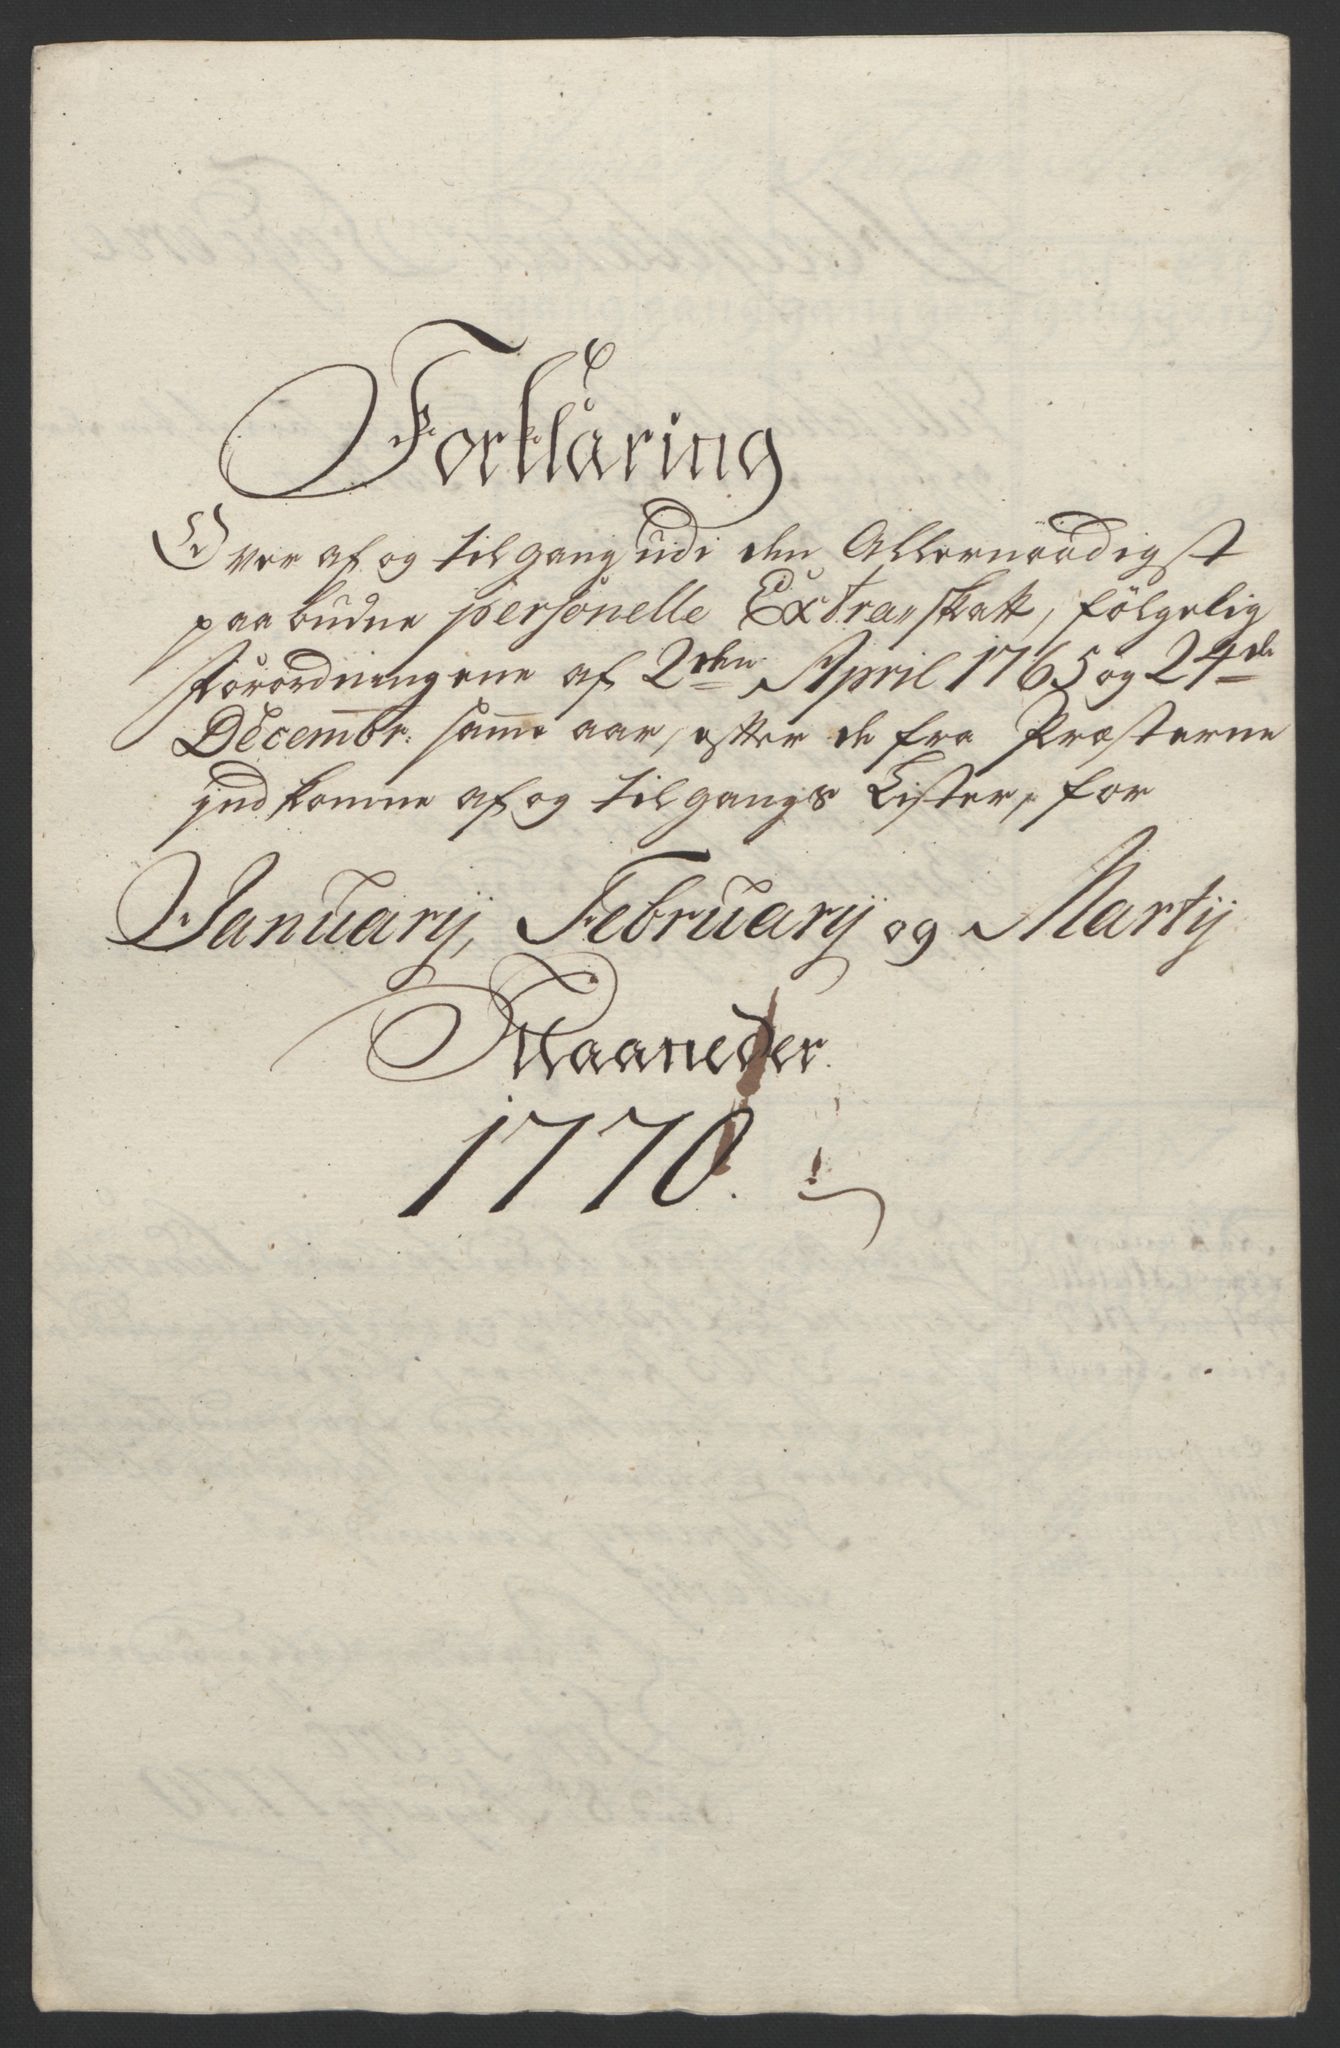 Forklaring
Over af og tilgang udi den Allernaadigst
paabudne personelle Extra,, skatt, følgelig
Forordningene af 2den April 1765 og 24de
Decembr. samme aar, efter de fra Præsterne
jndkomne af og tilgangs Lister, for
Januarij, Februarij og Martij
Maaneder
1770.